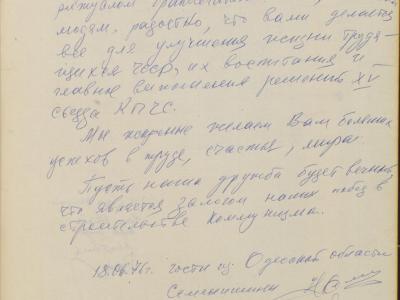 людям, радостно, что вами делается
все для улучшения жизни трудя-
щихся ЧССР, их воспитания и
главное выполнения решений XV
съезда КПЧС.
Мы искренне желаем Вам больших
успехов в труде, счастья, мира.
Пусть наша дружба будет вечной,
что является залогом наших побед в
строительстве коммунизма.
18.06.76г. гости из Одесской области